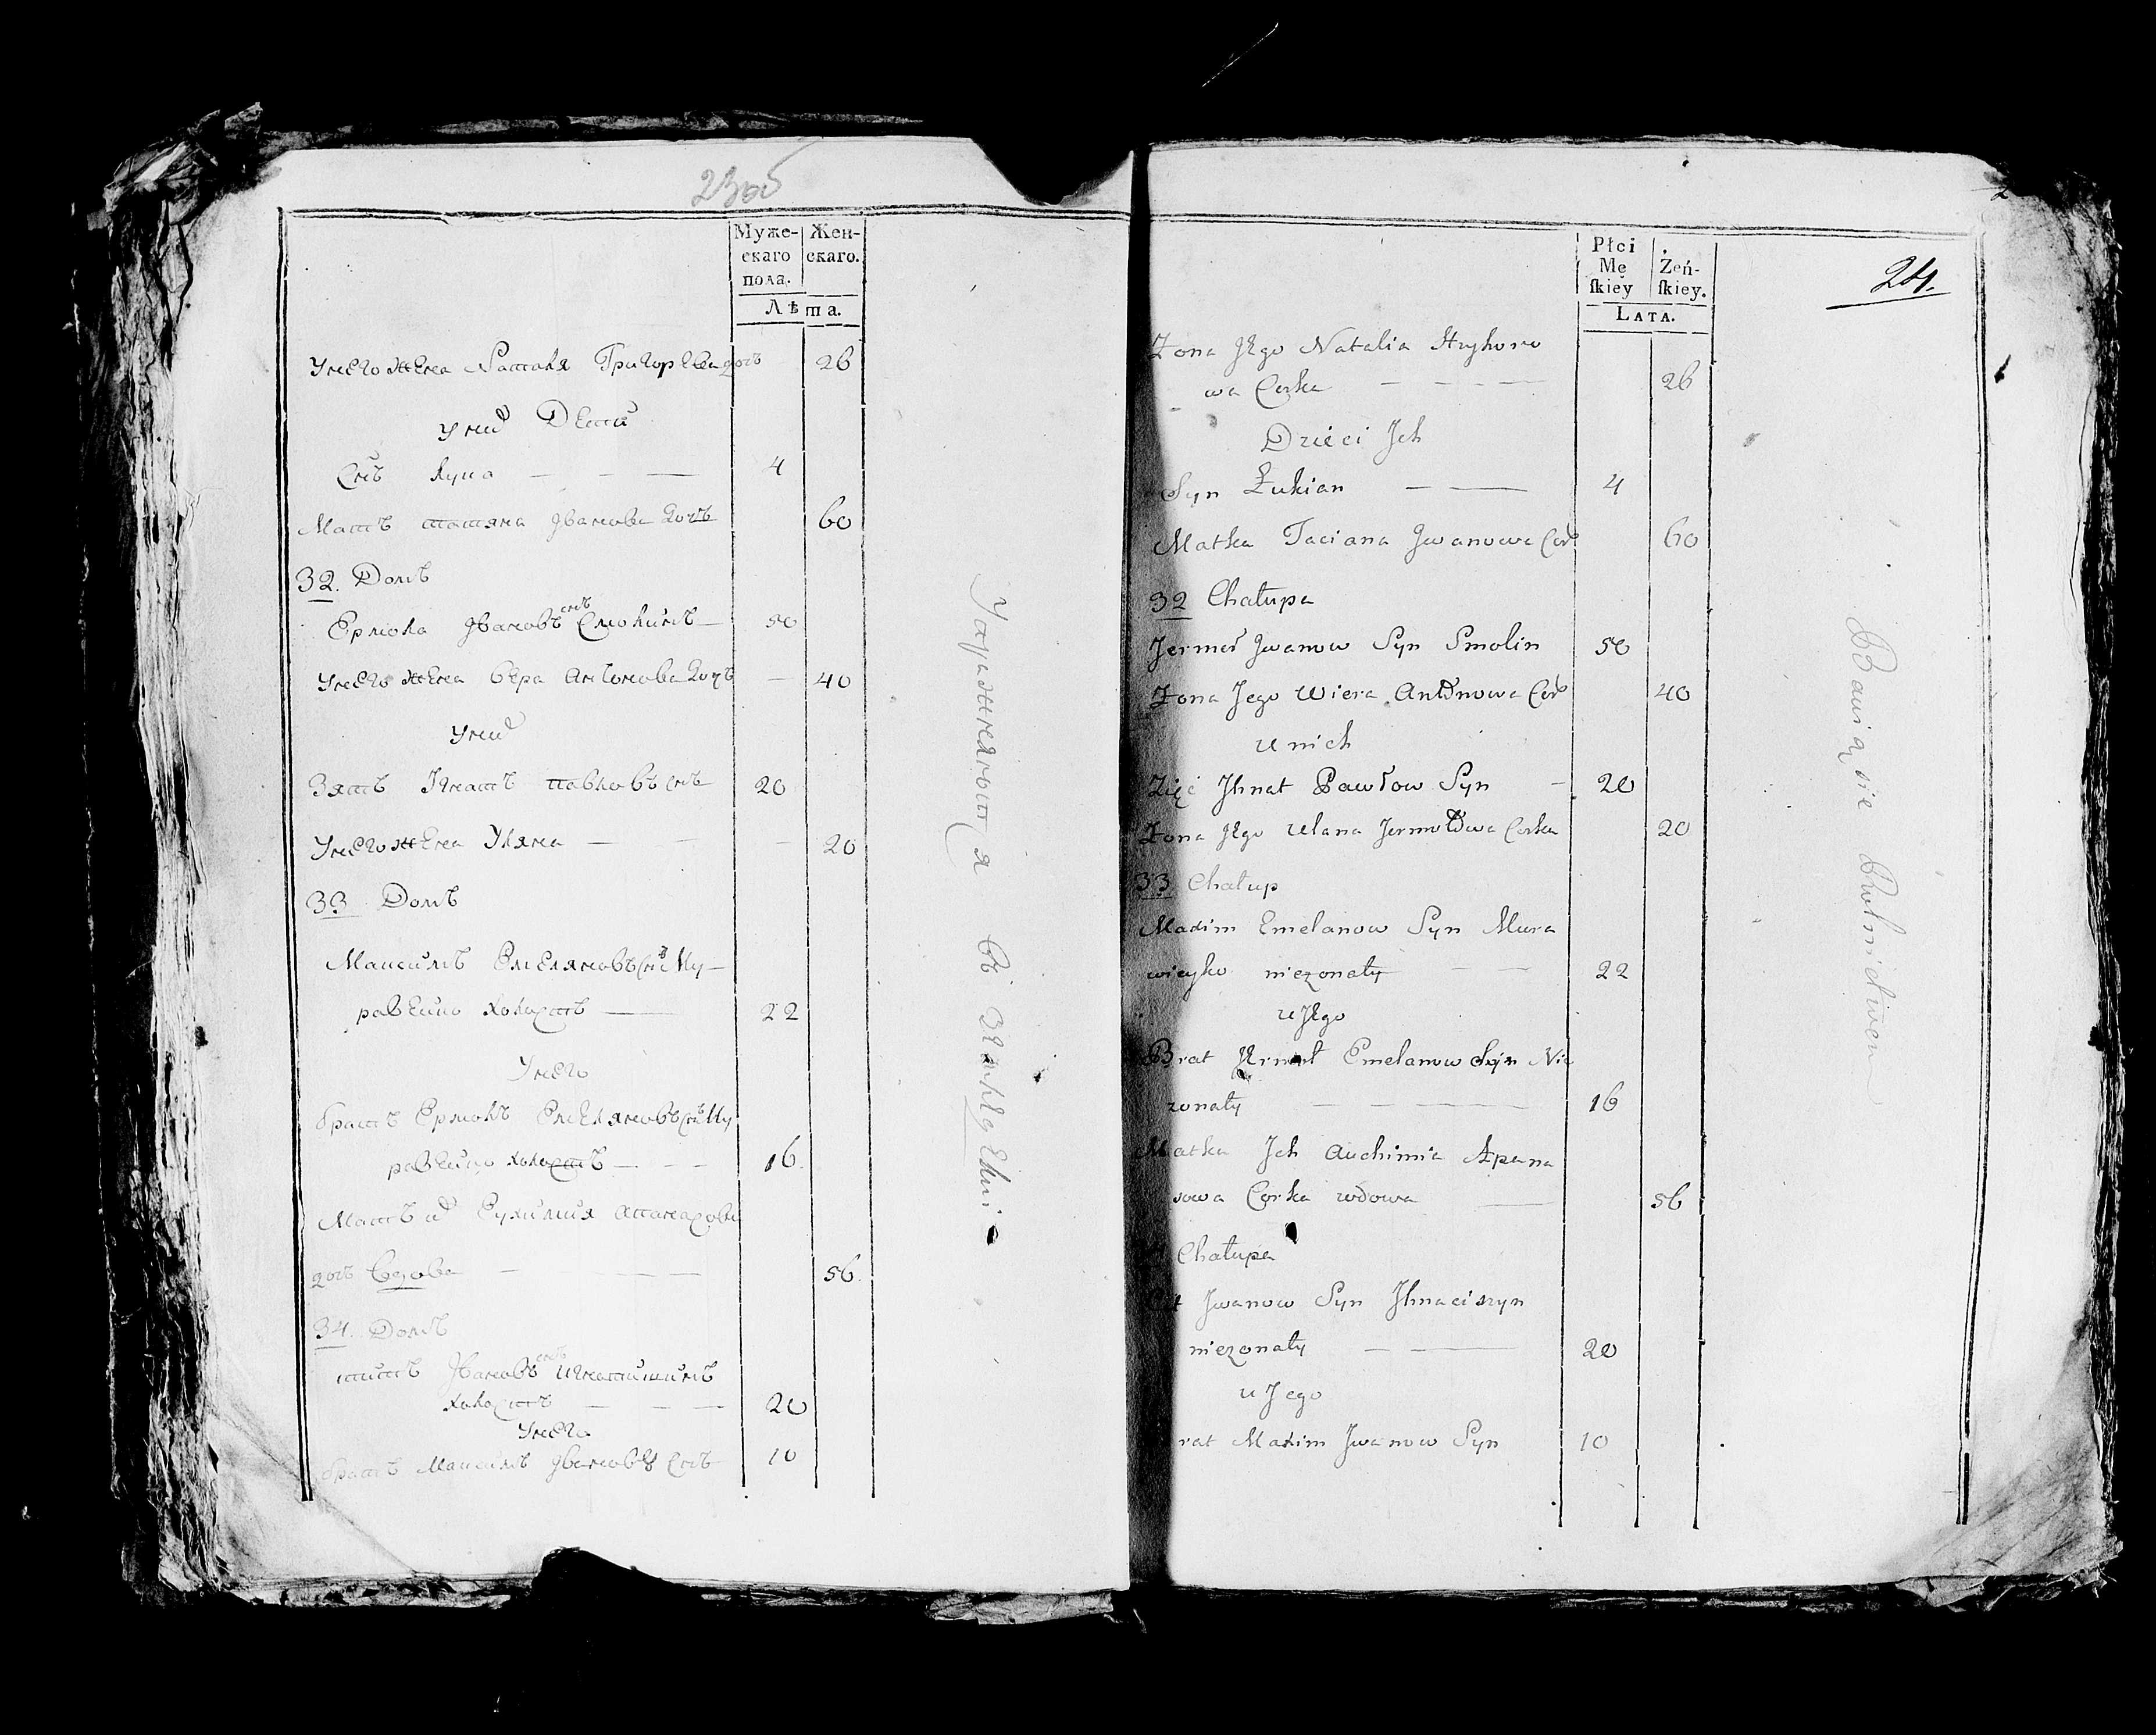 23об
Муже-
скаго
пола.
Жен-
скаго.
Лѣта.
Унего жена Наталя Григорева дочъ 26
Унид Дети
Снъ Лука — — — 4
Матъ татяна Iванова дочъ 60
32. Домъ
Ермола Iвановъ снъ Смолинъ — 50
Унего жена вера Антонова дочъ — 40
Унид
Зятъ Iгнатъ павловъ снъ 20
Унего жена Уляна — — — 20
33 Домъ
Максимъ Емеляновъ снъ Му—
равейко холостъ — 22
Унего
братъ Ермолъ Емеляновъ снъ Му
равейко холостъ — — — 16.
Матъ ид Еухимия апанасова
дочъ вдова — — — 56.
34. Домъ
титъ Iвановъ снъ игнатишинъ
холостъ — — — 20
Унего
братъ Максимъ Iвановъ снъ 10
Упражняются въ земледелии
Płci
Mę
ſkiey
Żeń-
ſkiey.
LATA.
24.
Żona Jego Natalia Hryhoro
wa Corka — — — — 26
Dzieci Jch
Syn Łukian — — 4
Matka Taciana Jwanowa Cor 60
32 Chałupa
Jermoł Jwanow Syn Smolin 50
Żona Jego Wiera Antonowa Cor 40
u nich
Zięć Jhnat Pawłow Syn — 20
Żona Jego Ulana Jermołowa Corka 20
33 Chałup
Maxim Emelanow Syn Mura
wieyko niezonaty — — 22
u Jego
Brat Jermoł Emelanow Syn Nie
zonaty — — — — 16
Matka Jch Auchimia Apana
sowa Corka wdowa — 56
Chałupa
Jwanow Syn Jhnaciszyn
niezonaty — — — 20
u Jego
rat Maxim Jwanow Syn 10
Bawią się Rolnictwem